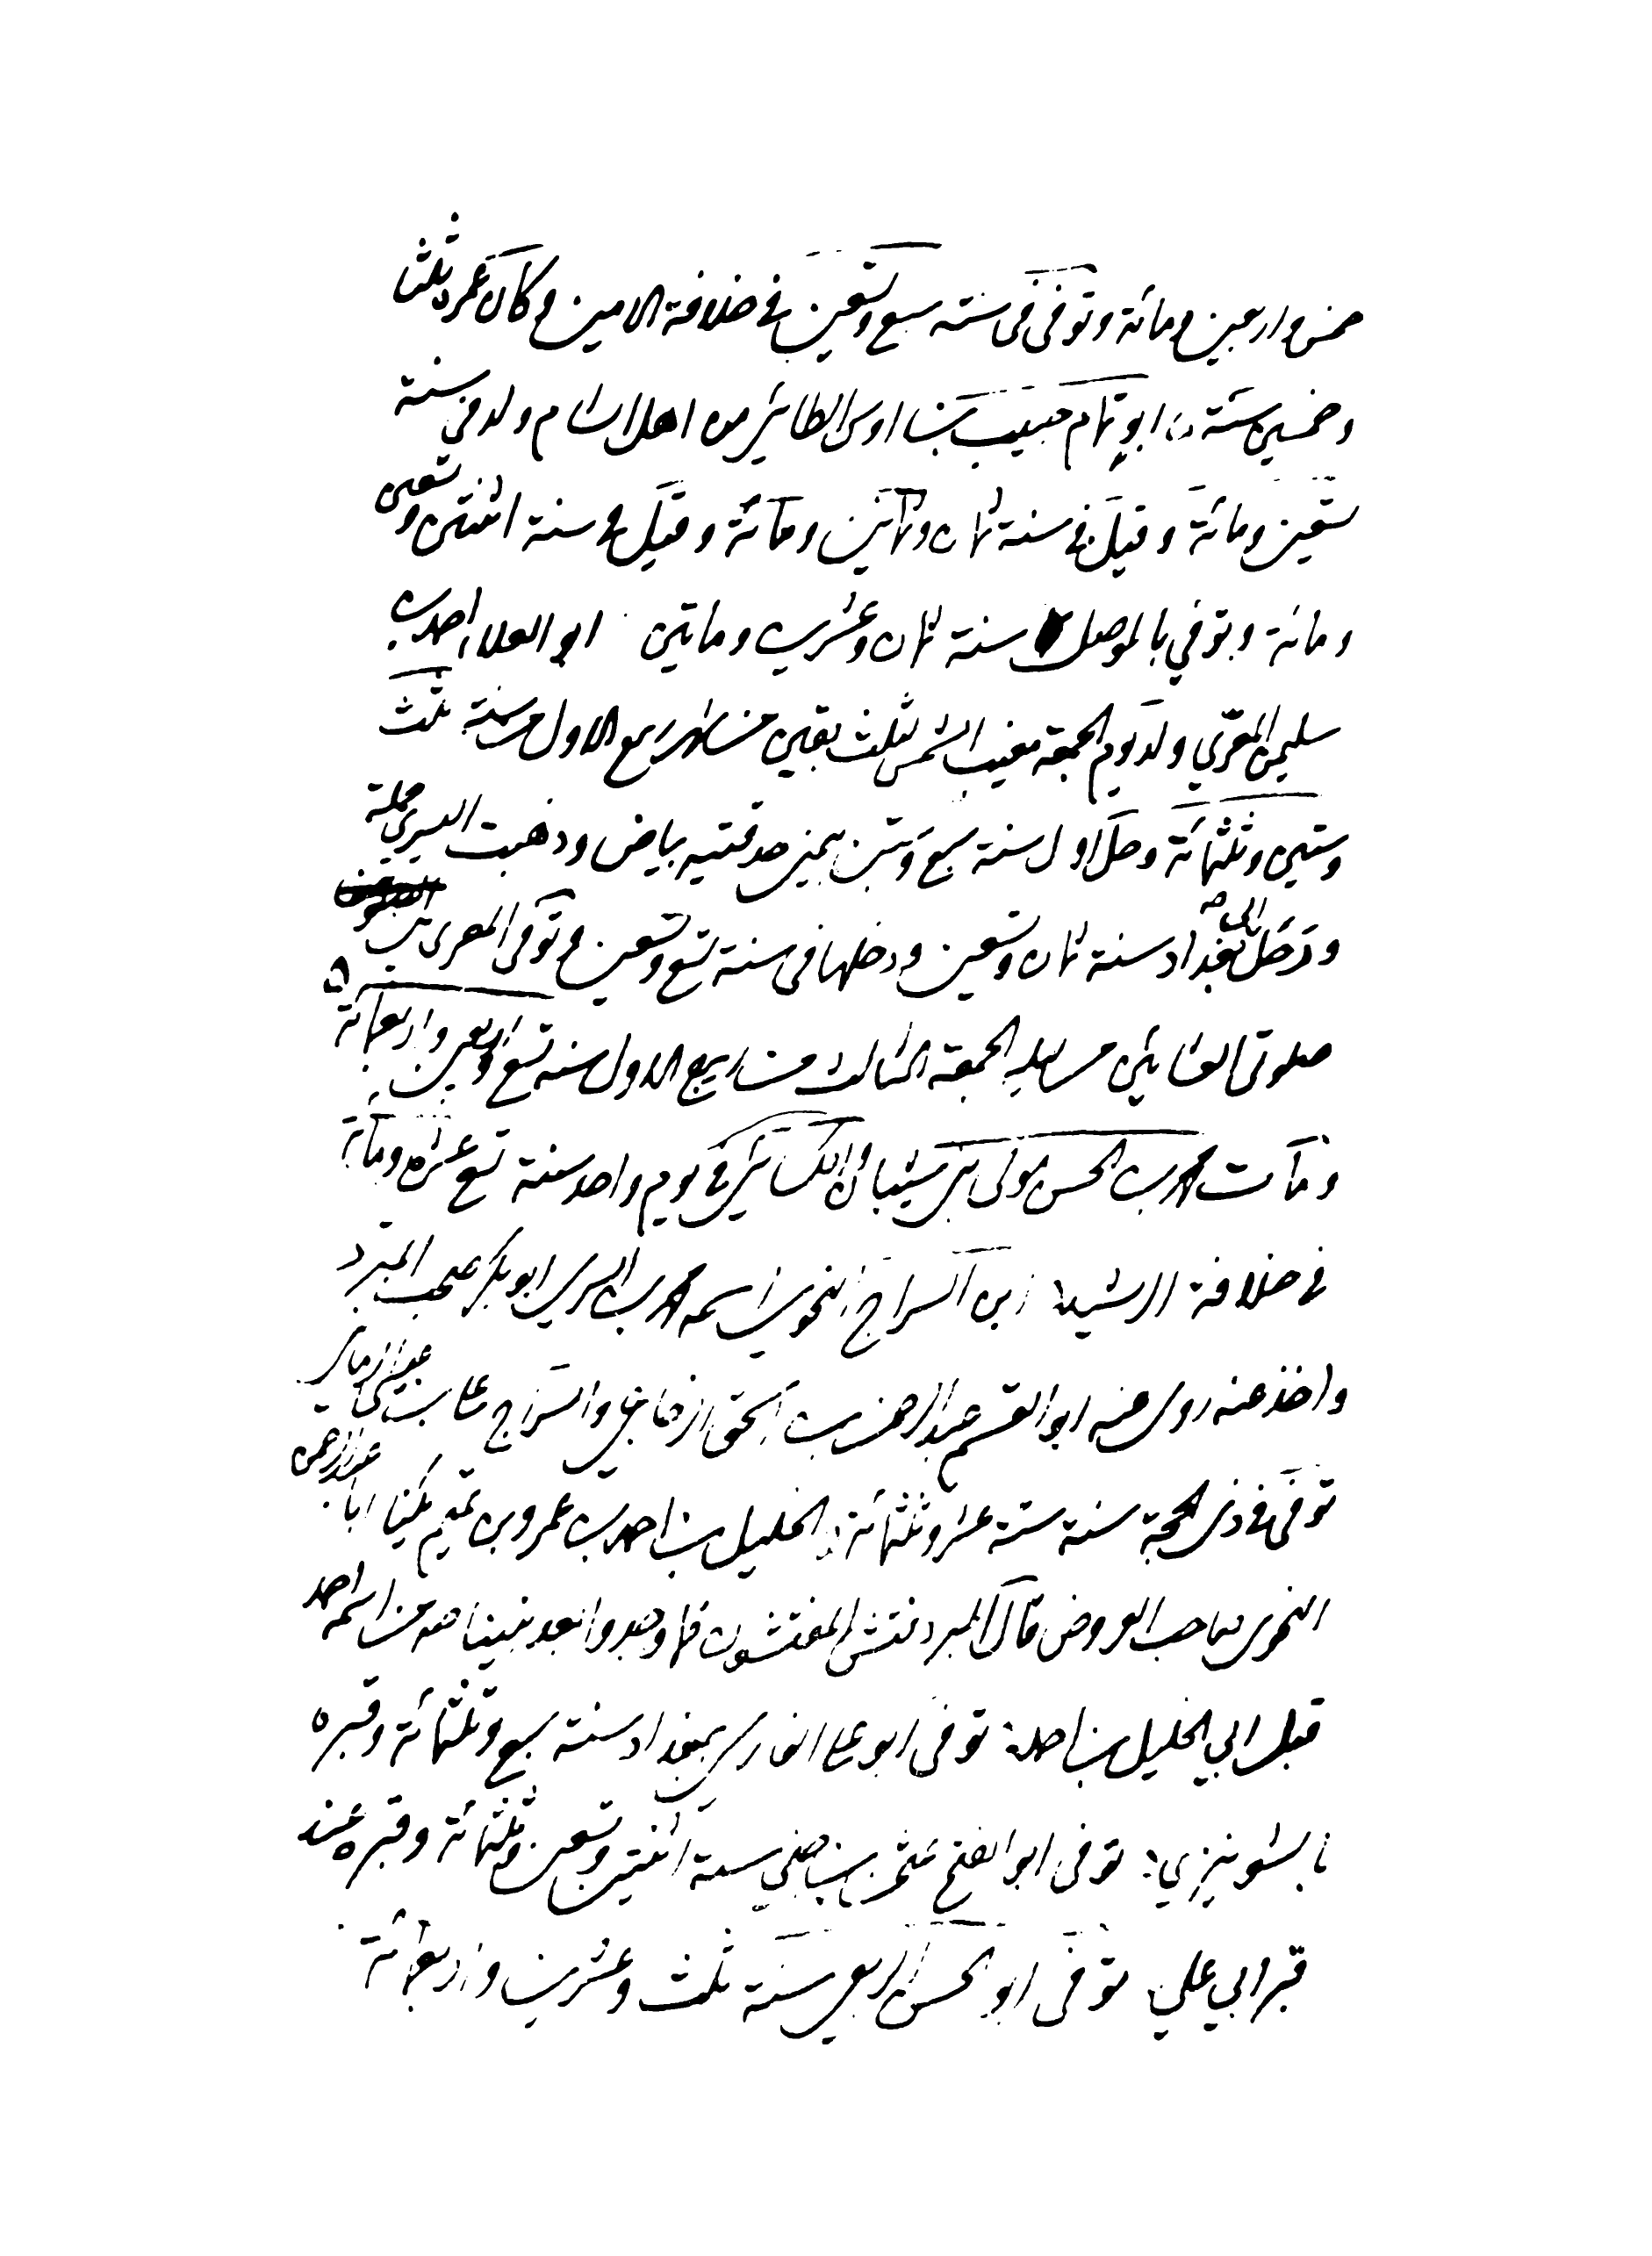 خمس واربعين ومائة وتوفى فى سنة سبع وتسعين فى خلافة الامين وكان عمره ثلثا
وخمسين سنة ابو تمام حبيب بن اوس الطائي من اهل الشام ولد في سنة
تسعين ومائة وقيل في سنة ثمان وثمانين ومائة وقيل في سنة اثنتين وتسعين
ومائة وتوفي بالموصل سنة ثمان وعشرين وماتين ابو العلاء احمد بن
سليمن المعرّي ولد يوم الجمعة مغيب الشمس لثلث بقين من شهر ربيع الاول من سنة ثلث
وستين وثلثمائة وحل اول سنة سبع وستين بيمنى حدقتيه بياض وذهبت اليسرى جملة
ورحل الى بغداد سنة ثمان وتسعين ودخلها فى سنة تسع وتسعين وتوفى المعرى بين
صلوتى العشائين من ليلة الجمعة الثالث من ربيع الاول سنة تسع واربعين واربعمائة
ومات محمد بن الحسن مولى بنى شيبان والكسائي في يوم واحد سنة تسع عشرة ومائة
فى خلافة الرشيد ابن السراج النحوي اسمه محمد بن السري ابو بكر صاحب المبرد
واخذ عنه روى عنه ابو القسم عبد الرحمن بن اسحق الزجاجي والسراج على بن عيسى الرماني
توفى فى ذى الحجة سنة ستة عشر وثلثمائة الخليل بن احمد بن عمرو بن تميم يكنا ابا عبد الرحمن
النحوى صاحب العروض قال المبرد فتش المفتشون فما وجدوا بعد نبينا صه من اسمه احمد
قبل ابي الخليل بن احمد توفى ابو على الفارسي ببغداد سنة سبع وثلثمائة وقبره
بالشونيزي توفى ابو الفتح عثمن بن جني سنة اثنتين وتسعين وثلثمائة وقبره عند
قبر ابي علي توفى ابو الحسن الربعي سنة ثلث وعشرين واربعمائة